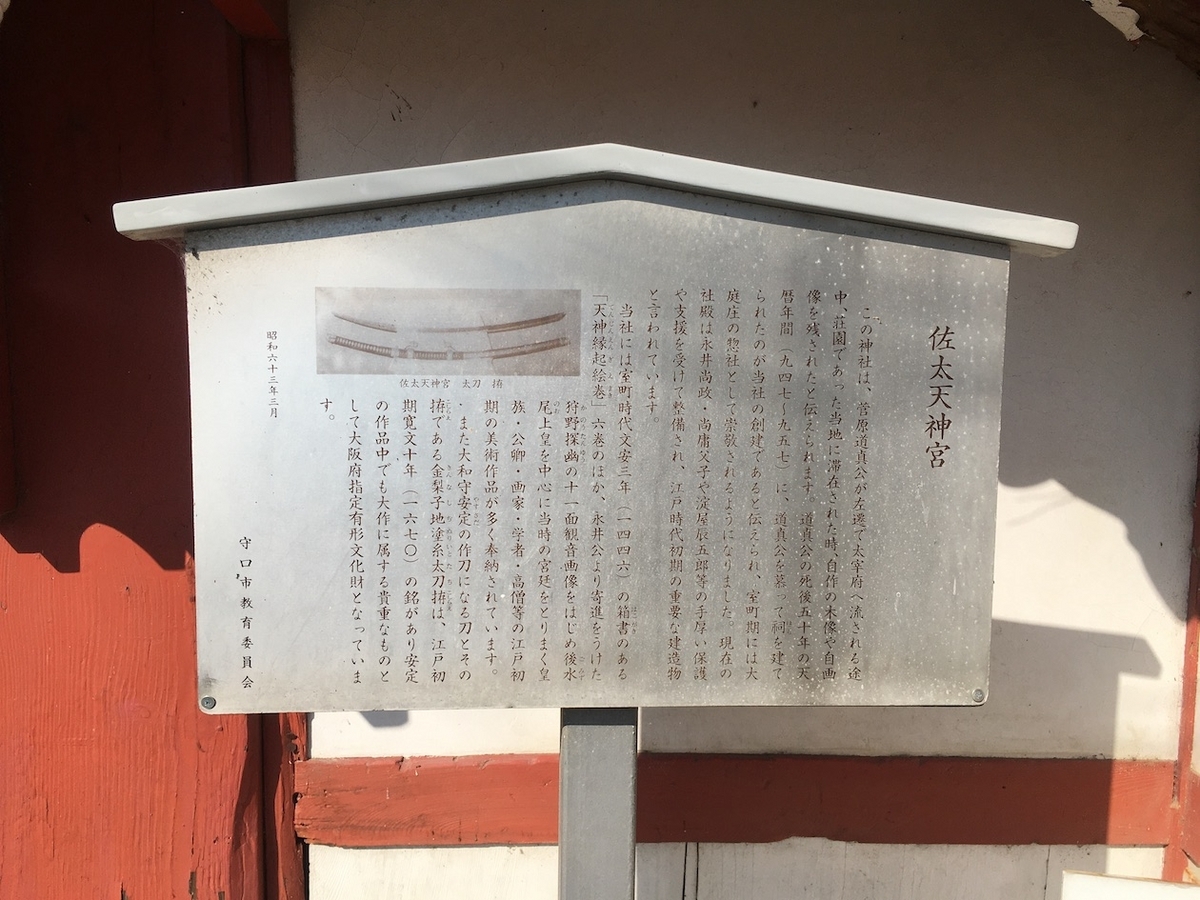 佐太天神宮
この神社は、菅原道真公が左遷で太宰府へ流される途
中、荘園であった当地に滞在された時、自作の木像や自画
像を残されたと伝えられます。道真公の死後五十年の天
暦年間（九四七〜九五七）に、道真公を慕って祠を建て
られたのが当社の創建であると伝えられ、室町期には大
庭庄の惣社として崇敬されるようになりました。現在の
社殿は永井尚政・尚庸父子や淀屋辰五郎等の手厚い保護
や支援を受けて整備され、江戸時代初期の重要な建造物
と言われています。
当社には室町時代文安三年（一四四六）の箱書のある
「天神縁起絵巻」六巻のほか、永井公より寄進をうけた
狩野探幽の十一面観音画像をはじめ後水
尾上皇を中心に当時の宮廷をとりまく皇
族・公卿・画家・学者・高僧等の江戸初
期の美術作品が多く奉納されています。
また大和守安定の作刀になる刀とその
拵である金梨子地塗糸太刀拵は、江戸初
期寛文十年（一六七〇）の銘があり安定
の作品中でも大作に属する貴重なものと
して大阪府指定有形文化財となっていま
す。
佐太天神宮　太刀　拵
昭和六十三年三月
守口市教育委員会